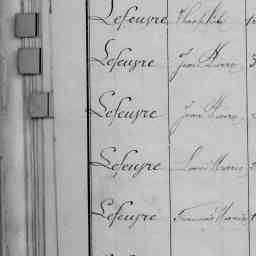 Lefeuvre
Lefeuvre Jean Pierre
Lefeuvre Jean Pierre
Lefeuvre Louis Marie
Lefeuvre François Marie